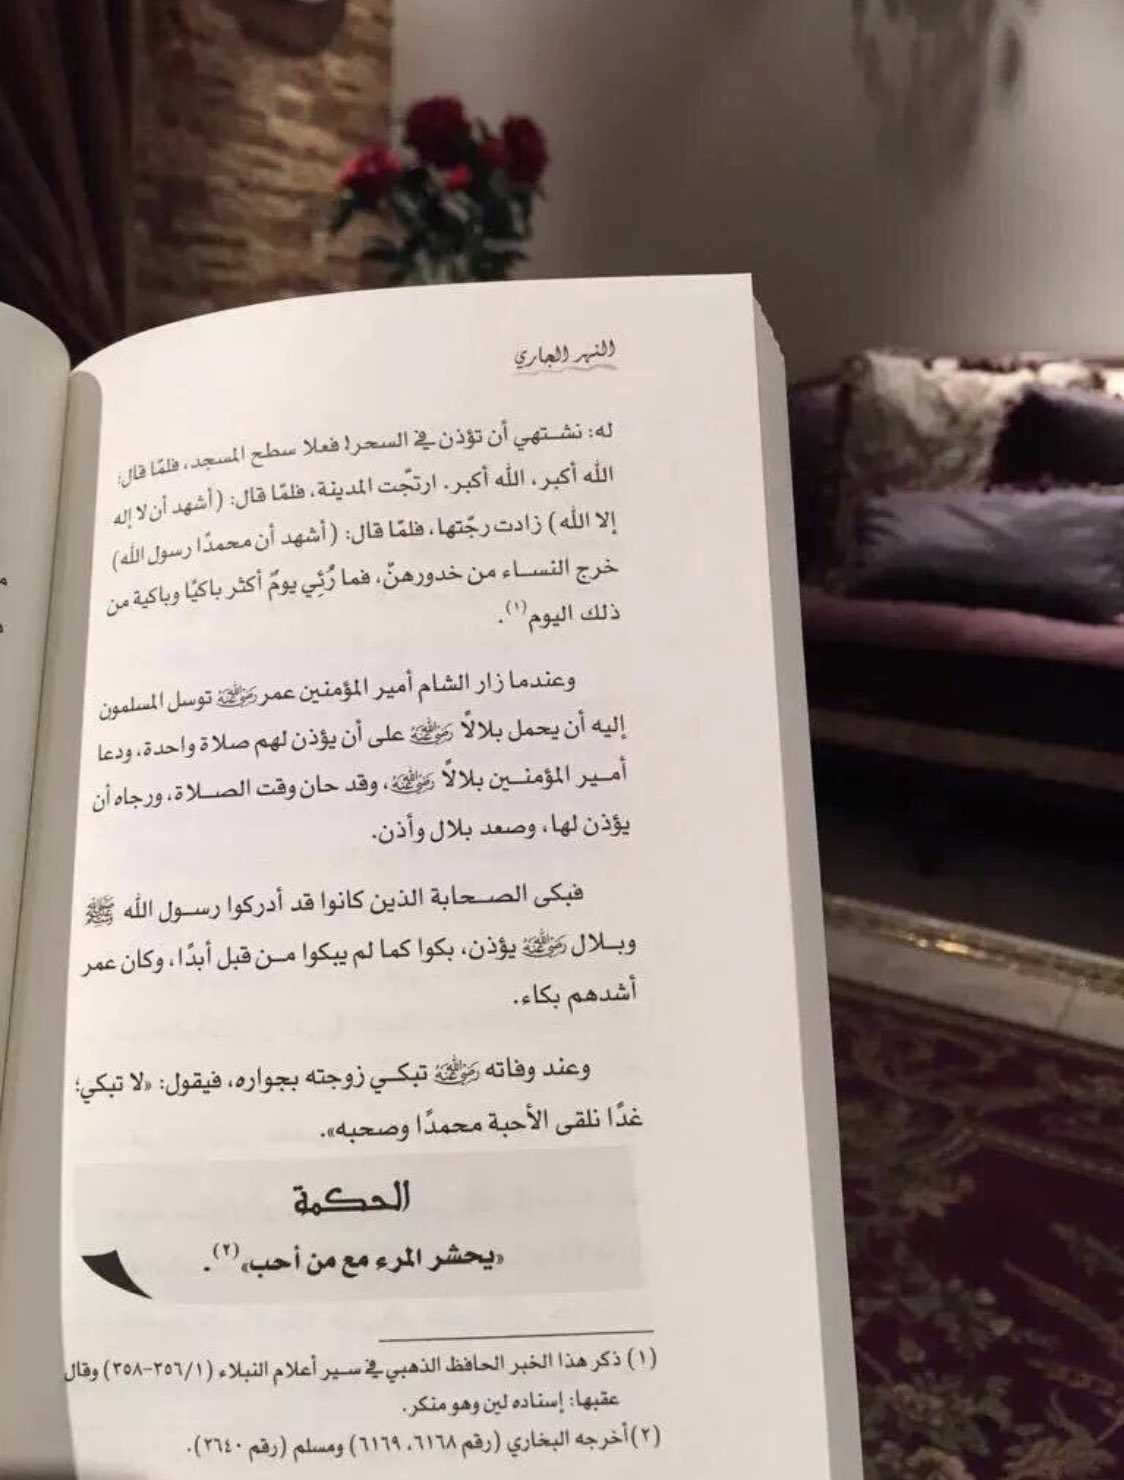 النهر الجاري
له: نشتهي أن تؤذن في السحر! فعلا سطح المسجد، فلمّا قال:
الله أكبر، الله أكبر. ارتجّت المدينة، فلمّا قال: (أشهد أن لا إله
إلا الله) زادت رجّتها، فلمّا قال: (أشهد أن محمدًا رسول الله)
خرج النساء من خدورهنّ، فما رُئِي يومٌ أكثر باكيًا وباكية من
ذلك اليوم(١).
وعندما زار الشام أمير المؤمنين عمر رَضِيَ اللَّهُ عَنْهُ توسل المسلمون
إليه أن يحمل بلالًا رَضِيَ اللَّهُ عَنْهُ على أن يؤذن لهم صلاة واحدة، ودعا
أمير المؤمنين بلالًا رَضِيَ اللَّهُ عَنْهُ، وقد حان وقت الصلاة، ورجاه أن
يؤذن لها، وصعد بلال وأذن.
فبكى الصحابة الذين كانوا قد أدركوا رسول الله ﷺ
وبلال رَضِيَ اللَّهُ عَنْهُ يؤذن، بكوا كما لم يبكوا من قبل أبدًا، وكان عمر
أشدهم بكاء.
وعند وفاته رَضِيَ اللَّهُ عَنْهُ تبكي زوجته بجواره، فيقول: «لا تبكي؛
غدًا نلقى الأحبة محمدًا وصحبه».
الحكمة
«يحشر المرء مع من أحب»(٢).
(١) ذكر هذا الخبر الحافظ الذهبي في سير أعلام النبلاء (٣٥٦/١-٣٥٨) وقال
عقبها: إسناده لين وهو منكر.
(٢) أخرجه البخاري (رقم ٦١٦٨، ٦١٦٩) ومسلم (رقم ٢٦٤٠).